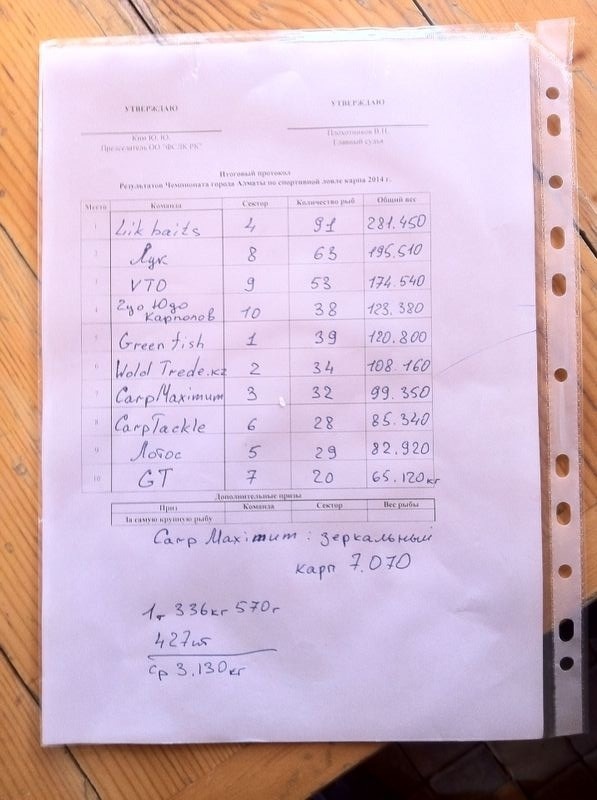 УТВЕРЖДАЮ
УТВЕРЖДАЮ
Ким Ю. Ю.
Председатель ОО "ФСЛК РК"
Плохотников В.Н.
Главный судья
Итоговый протокол
Результатов Чемпионата города Алматы по спортивной ловле карпа 2014 г.
Место Команда Сектор Количество рыб Общий вес
1 Lik baits 4 91 281.450
2 Лук 8 63 195.510
3 VTO 9 53 174.540
4 Чудо Юдо Карполов 10 38 123.380
5 Green fish 1 39 120.800
6 Wold Trede.kz 2 34 108.160
7 CarpMaximum 3 32 99.350
8 CarpTackle 6 28 85.340
9 Лотос 5 29 82.920
10 GT 7 20 65.120кг
Дополнительные призы
Приз Команда Сектор Вес рыбы
За самую крупную рыбу
Carp Maximum : зеркальный
карп 7.070
1т 336кг 570г
427шт
ср 3.130кг